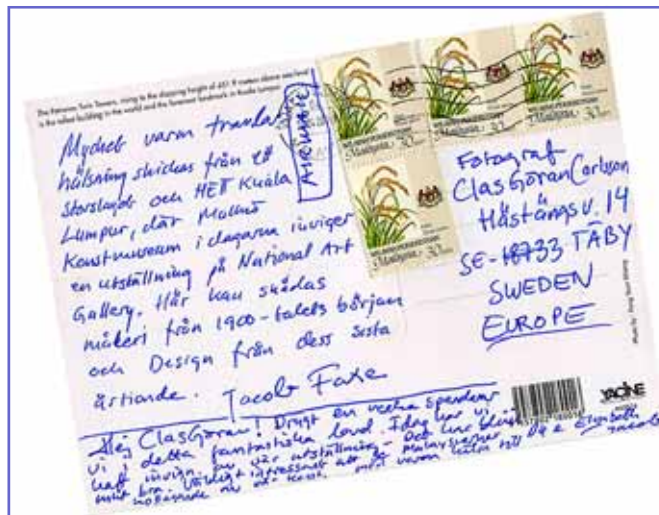 The Petronas Twin Towers, rising to the dizzying height of 451.9 meters above sea level
is the tallest building in the world and the foremost landmark in Kuala Lumpur.
Mycket varm
hälsning skickas från ett
storslaget och HETT Kuala
Lumpur, där Malmö
Konstmuseum i dagarna inviger
en utställning på National Art
Gallery. Här kan skådas
måleri från 1900-talets början
och Design från dess sista
årtionde. Jacob Faxe
AIRMAIL
Malaysia 30 sen
Malaysia 30 sen
Malaysia 30 sen
Malaysia 30 sen
Fotograf
ClasGöran Carlsson
Hästängsv. 14
SE-18733 TÄBY
SWEDEN
EUROPE
YACINE
Hej ClasGöran! Drygt en vecka spenderar
vi i detta fantastiska land. Idag har vi
haft invign. av vår utställning - Det har blivit
mkt bra. Väldigt intressant att se
med varm